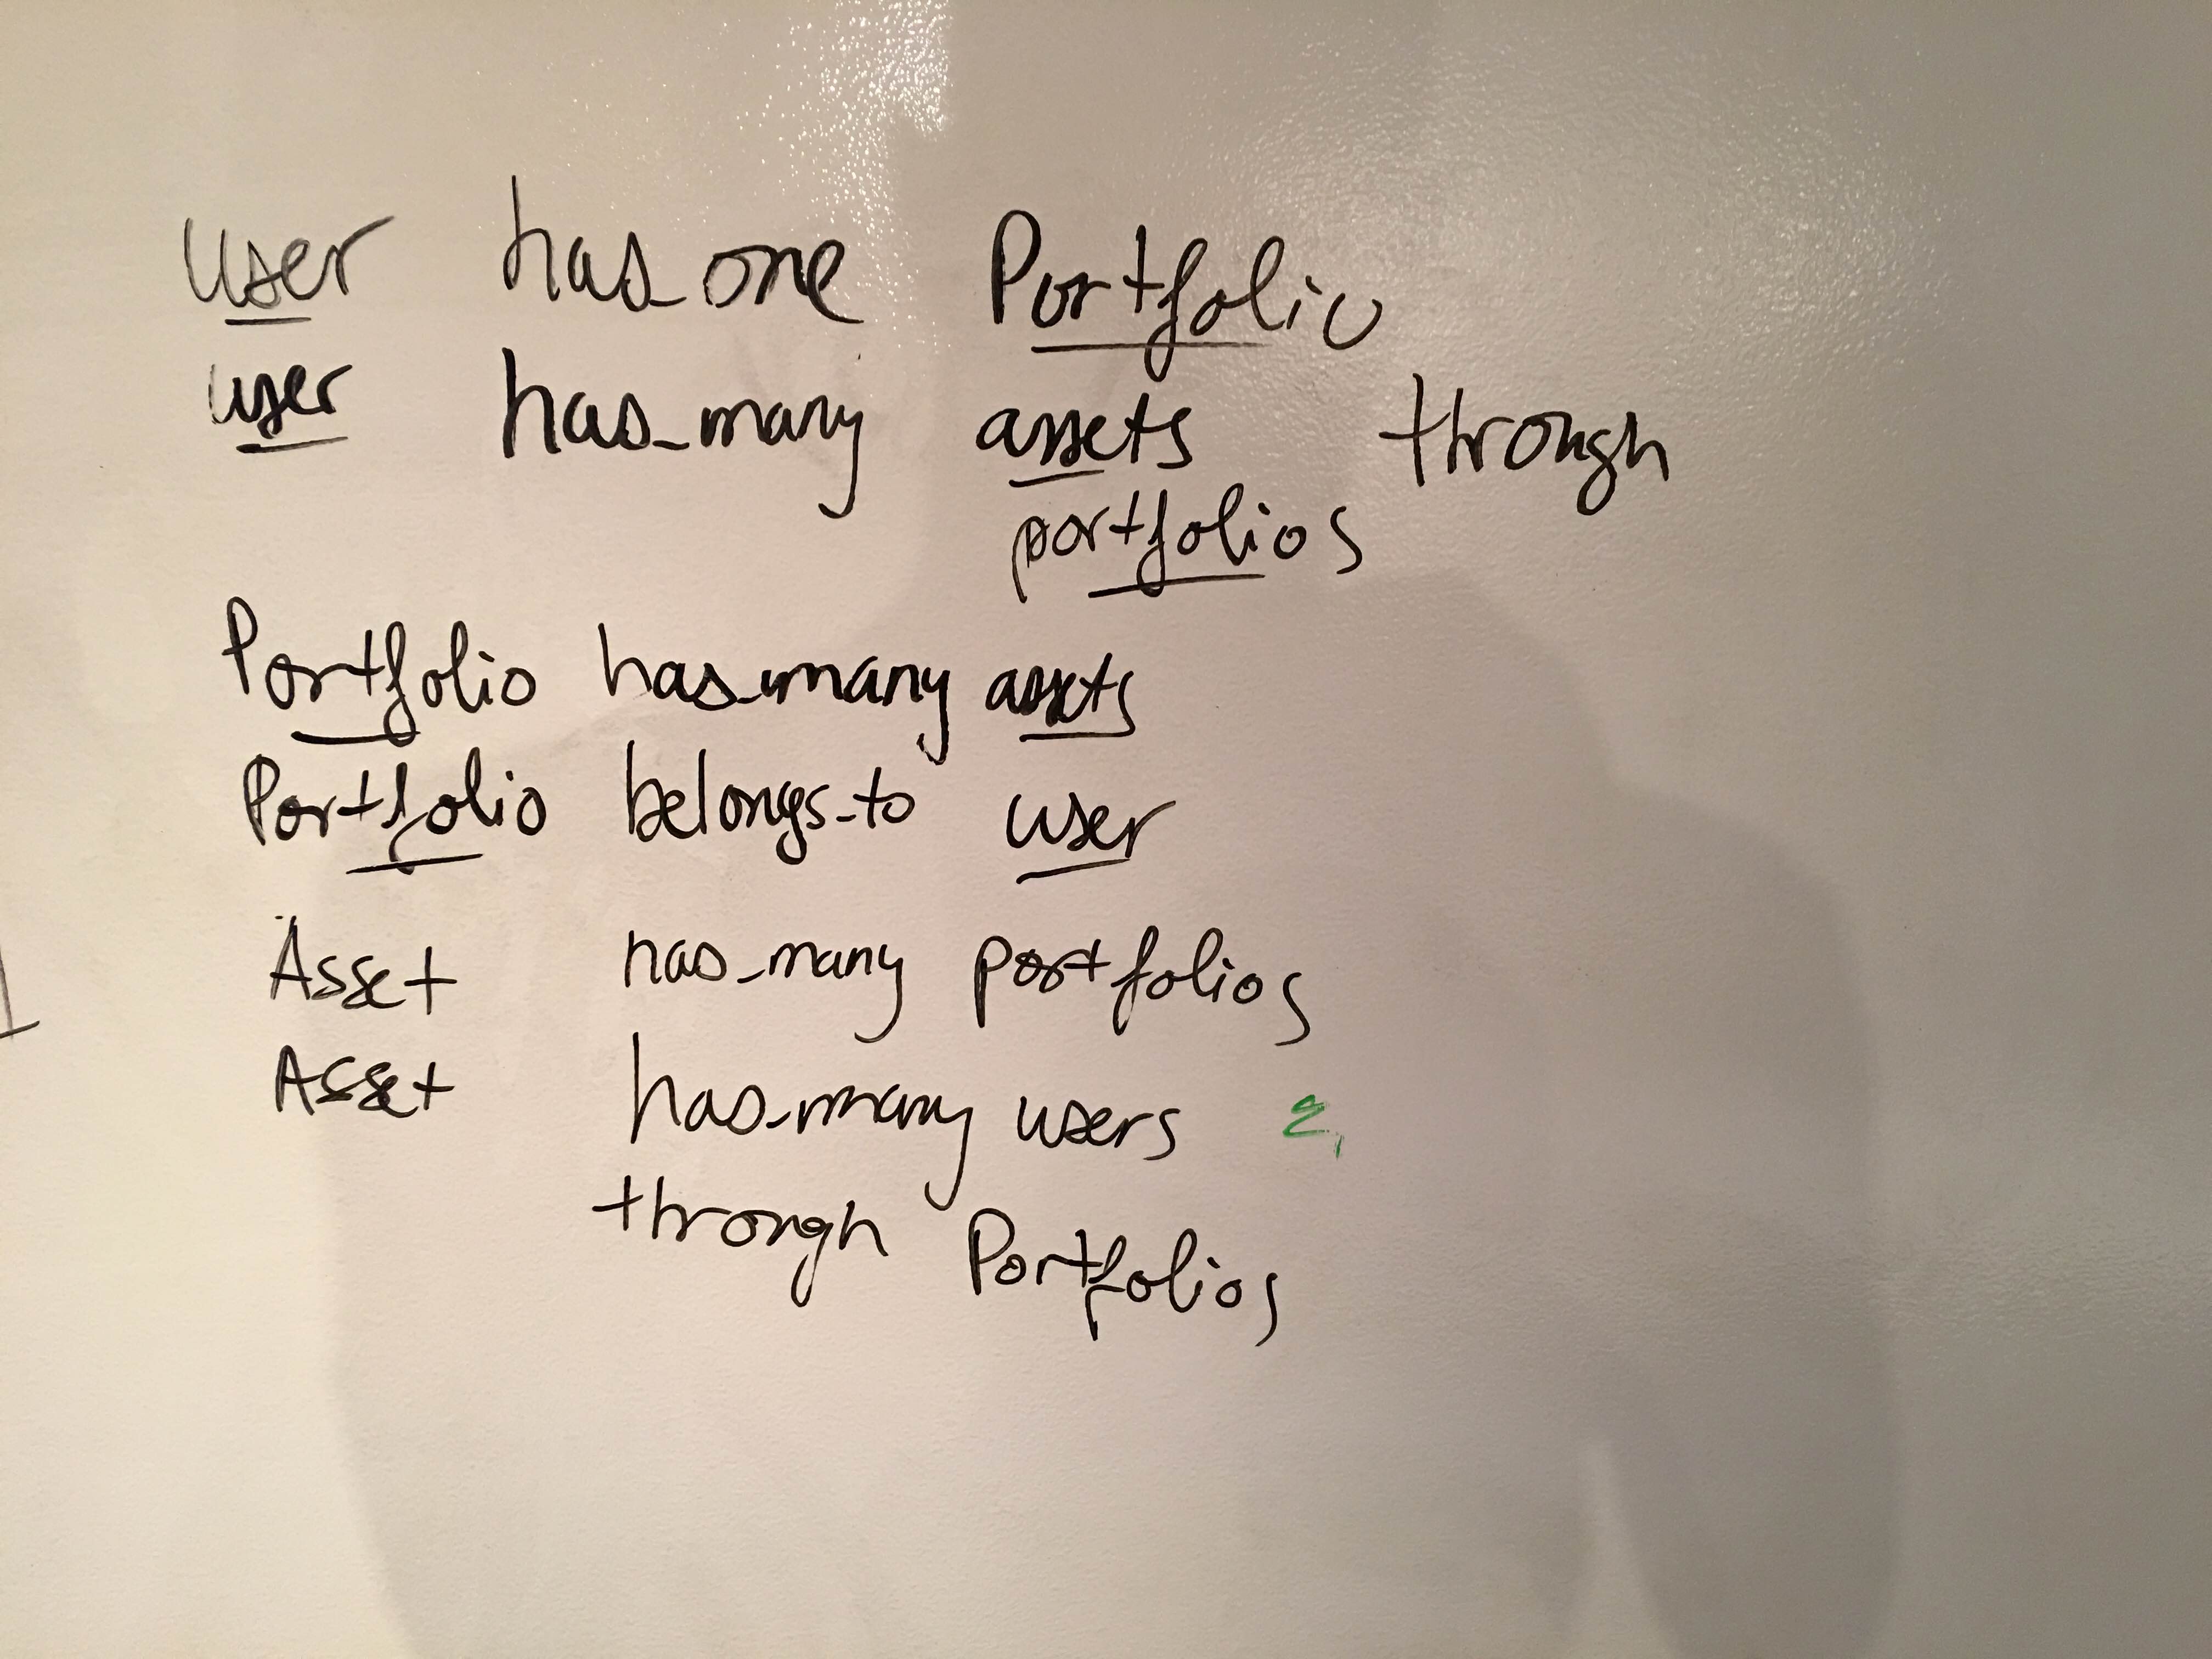 user has_one Portfolio
user has_many assets through
portfolios
Portfolio has_many assets
Portfolio belongs_to user
Asset has_many portfolios
Asset has_many users
through Portfolios